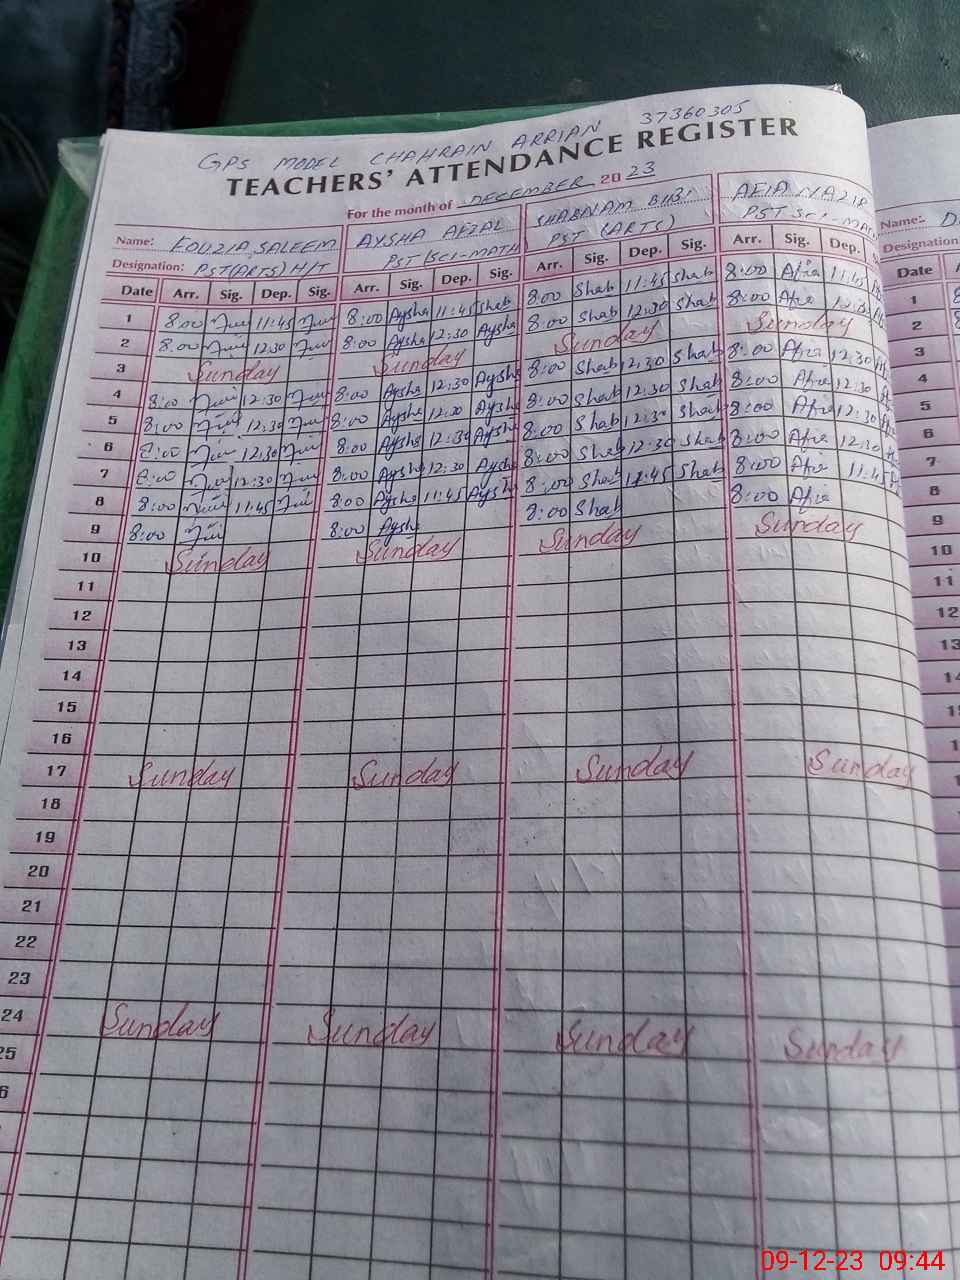 GPS MODEL CHAHRAIN ARRIAN 37360305
TEACHERS' ATTENDANCE REGISTER
For the month of DECEMBER 2023
Name: FOUZIA SALEEM AYSHA AFZAL SHABNAM BIBI AFIA NAZIR Name:
Designation: PST(ARTS) H/T PST(SCI-MATH PST (ARTS) PST SCI-MA Designation
Date Arr. Sig. Dep. Sig. Arr. Sig. Dep. Sig. Arr. Sig. Dep. Sig. Arr. Sig. Dep. Date
1 8:00 11:45 8:00 Aysha 11:45 Shab 8:00 Shab 11:45 Shab 8:00 Afia 11:45 1
2 8:00 12:30 8:00 Aysha 12:30 Aysha 8:00 Shab 12:30 Shab 8:00 Afia 12:30 2
3 Sunday Sunday Sunday Sunday 3
4 8:00 12:30 8:00 Aysha 12:30 Aysha 8:00 Shab 12:30 Shab 8:00 Afia 12:30 4
5 8:00 12:30 8:00 Aysha 12:30 Aysha 8:00 Shab 12:30 Shab 8:00 Afia 12:30 5
6 8:00 12:30 8:00 Aysha 12:30 Aysha 8:00 Shab 12:30 Shab 8:00 Afia 12:30 6
7 8:00 12:30 8:00 Aysha 12:30 Aysha 8:00 Shab 12:30 Shab 8:00 Afia 12:30 7
8 8:00 11:45 8:00 Aysha 11:45 Aysha 8:00 Shab 11:45 Shab 8:00 Afia 11:45 8
9 8:00 8:00 Aysh 8:00 Shab 8:00 Afia 9
10 Sunday Sunday Sunday Sunday 10
11 11
12 12
13 13
14
15
16
17 Sunday Sunday Sunday Sunday
18
19
20
21
22
23
24 Sunday Sunday Sunday Sunday
25
6
09-12-23 09:44